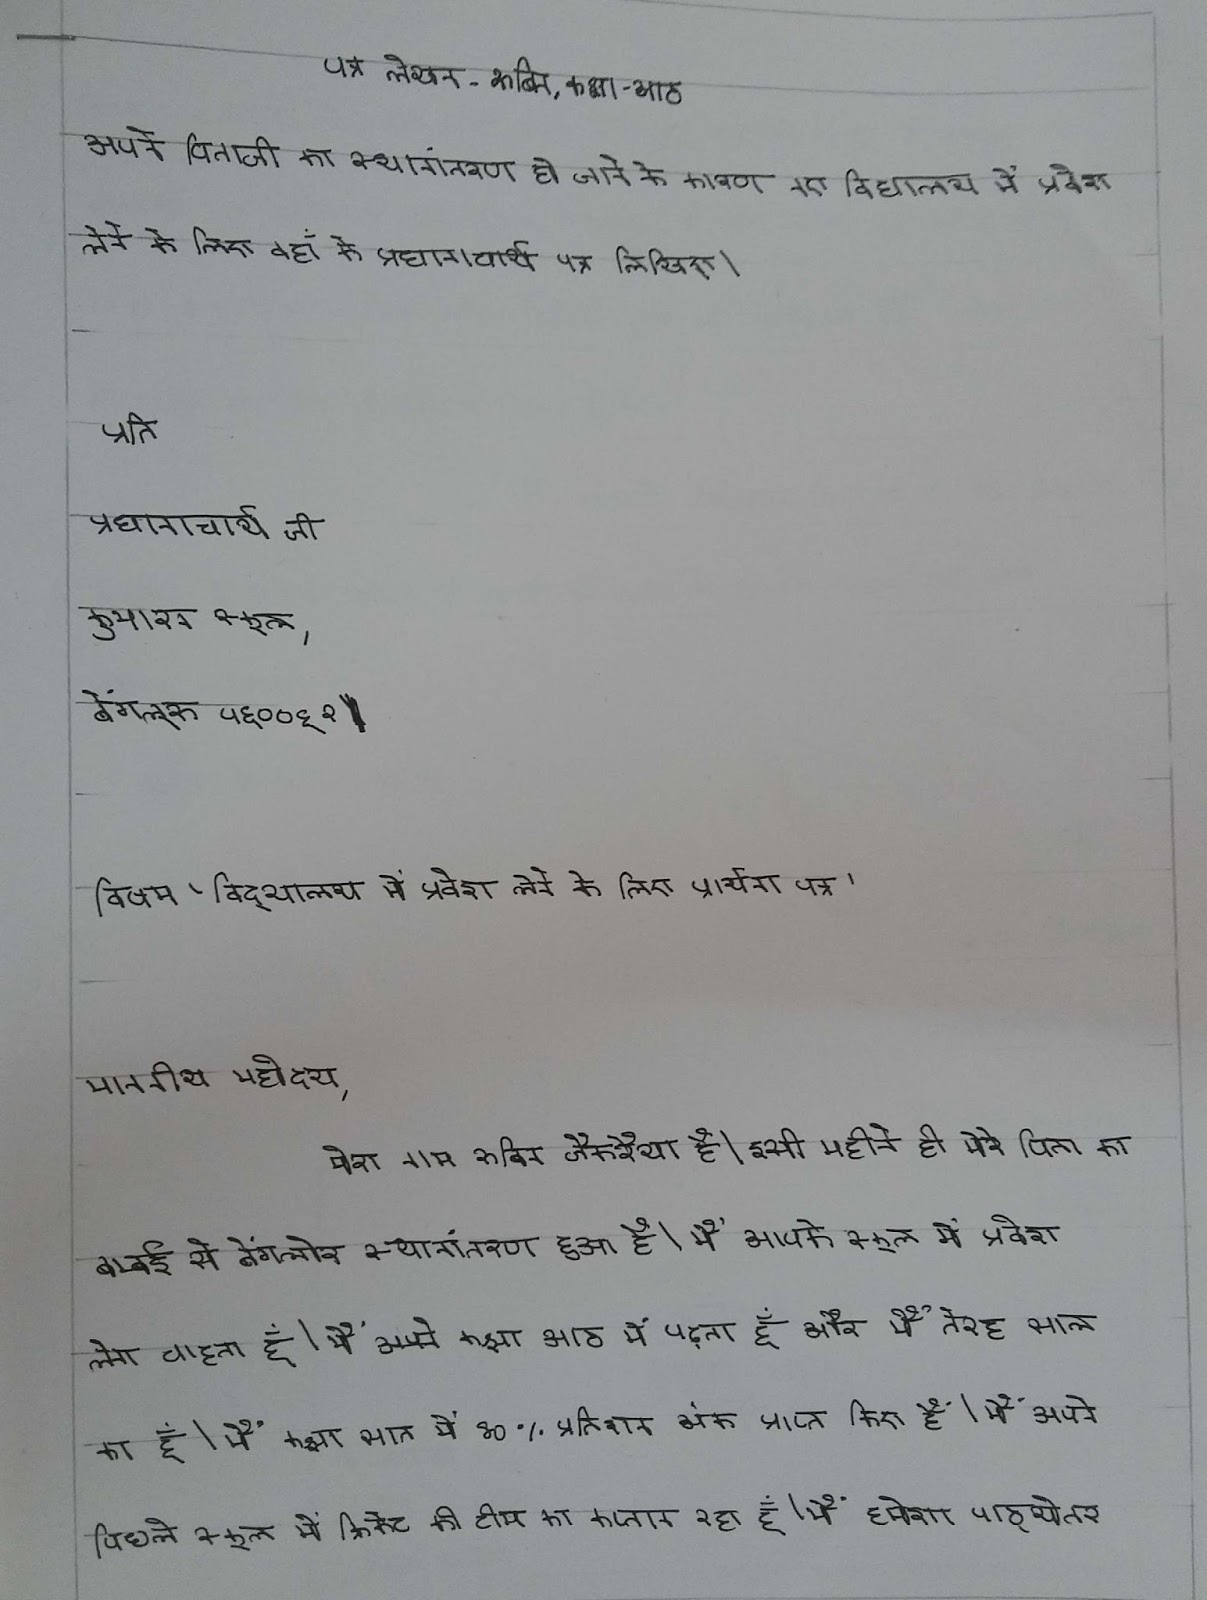 पत्र लेखन - कबिर, कक्षा - आठ
अपने पिताजी का स्थानांतरण हो जाने के कारण नए विद्यालय में प्रवेश
लेने के लिए वहाँ के प्रधानाचार्य पत्र लिखिए।
प्रति
प्रधानाचार्य जी
कुमारन स्कूल,
बेंगलूरू ५६००६२
विजम 'विद्यालय में प्रवेश लेने के लिए प्रार्थना पत्र'
माननीय महोदय,
मेरा नाम कबिर जैकरैया है। इसी महीने ही मेरे पिता का
बम्बई से बेंगलोर स्थानांतरण हुआ है। मैं आपके स्कूल में प्रवेश
लेना चाहता हूँ। मैं अपने कक्षा आठ में पढ़ता हूँ और मैं तेरह साल
का हूँ। मैं कक्षा सात में ९०% प्रतिशत अंक प्राप्त किए हैं। मैं अपने
पिछले स्कूल में क्रिकेट की टीम का कप्तान रहा हूँ। मैं हमेशा पाठ्येतर